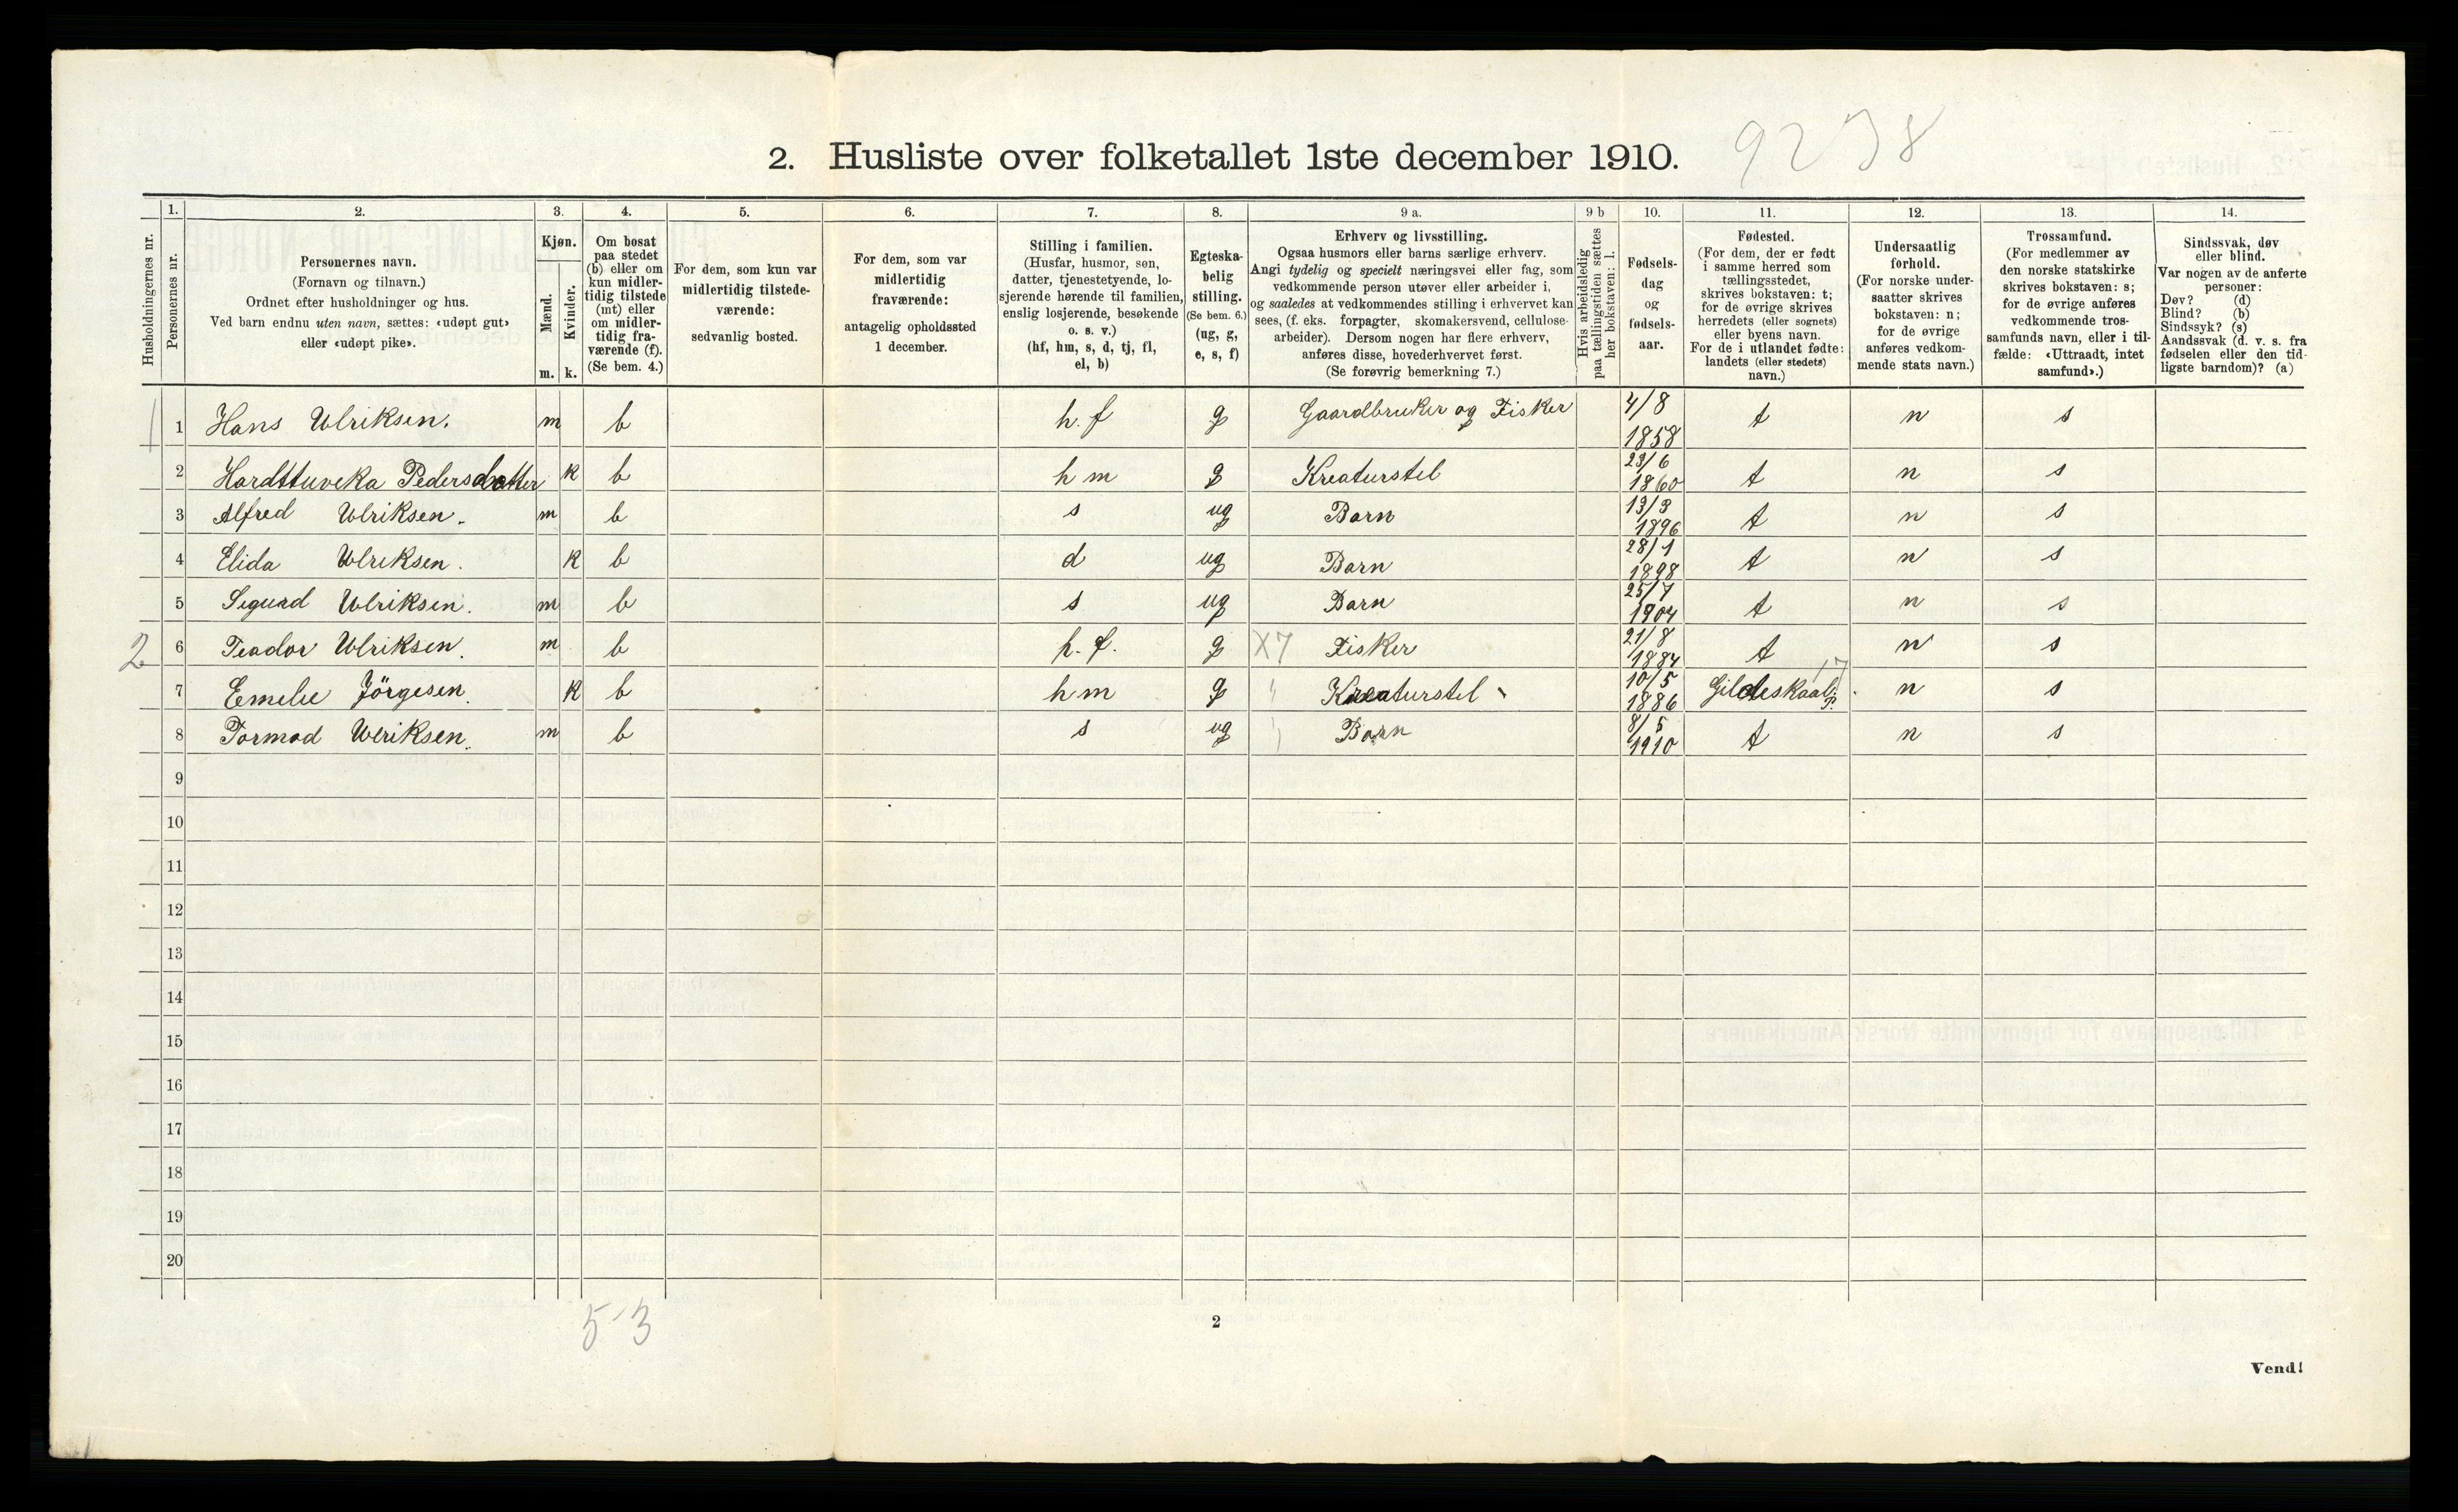 9238
2. Husliste over folketallet 1ste december 1910.
Husholdningernes nr.
1. Personernes nr.
2. Personernes navn.
(Fornavn og tilnavn.)
Ordnet efter husholdninger og hus.
Ved barn endnu uten navn, sættes: «udøpt gut»
eller «udøpt pike».
3. Kjøn.
Mænd. Kvinder.
m. k.
4. Om bosat
paa stedet
(b) eller om
kun midler-
tidig tilstede
(mt) eller
om midler-
tidig fra-
værende (f).
(Se bem. 4.)
5. For dem, som kun var
midlertidig tilstede-
værende:
sedvanlig bosted.
6. For dem, som var
midlertidig
fraværende:
antagelig opholdssted
1 december.
7. Stilling i familien.
(Husfar, husmor, søn,
datter, tjenestetyende, lo-
sjerende hørende til familien,
enslig losjerende, besøkende
o. s. v.)
(hf, hm, s, d, tj, fl,
el, b)
8. Egteska-
belig
stilling.
(Se bem. 6.)
(ug, g,
e, s, f)
9 a. Erhverv og livsstilling.
Ogsaa husmors eller barns særlige erhverv.
Angi tydelig og specielt næringsvei eller fag, som
vedkommende person utøver eller arbeider i,
og saaledes at vedkommendes stilling i erhvervet kan
sees, (f. eks. forpagter, skomakersvend, cellulose-
arbeider). Dersom nogen har flere erhverv,
anføres disse, hovederhvervet først.
(Se forøvrig bemerkning 7.)
9 b Hvis arbeidsledig
paa tællingstiden sættes
her bokstaven: l.
10. Fødsels-
dag
og
fødsels-
aar.
11. Fødested.
(For dem, der er født
i samme herred som
tællingsstedet,
skrives bokstaven: t;
for de øvrige skrives
herredets (eller sognets)
eller byens navn.
For de i utlandet fødte:
landets (eller stedets)
navn.)
12. Undersaatlig
forhold.
(For norske under-
saatter skrives
bokstaven: n;
for de øvrige
anføres vedkom-
mende stats navn.)
13. Trossamfund.
(For medlemmer av
den norske statskirke
skrives bokstaven: s;
for de øvrige anføres
vedkommende tros-
samfunds navn, eller i til-
fælde: «Uttraadt, intet
samfund».)
14. Sindssvak, døv
eller blind.
Var nogen av de anførte
personer:
Døv? (d)
Blind? (b)
Sindssyk? (s)
Aandssvak (d. v. s. fra
fødselen eller den tid-
ligste barndom)? (a)
1 1 Hans Ulriksen. m b h. f g Gaardbruker og Fisker 4/8 1858 t n s
2 Hardttuveka Pedersdatter k b h m g Kreaturstel 23/6 1860 t n s
3 Alfred Ulriksen. m b s ug Barn 13/3 1896 t n s
4 Elida Ulriksen. k b d ug Barn 28/1 1898 t n s
5 Sigurd Ulriksen. m b s ug Barn 25/7 1904 t n s
2 6 Teador Ulriksen. m b h. f. g X7 Fisker 21/8 1884 t n s
7 Emelie Jörgesen. k b h m g " Kreaturstel 10/5 1886 Gildeskaal p. 17 n s
8 Tormod Ulriksen. m b s ug Barn 8/5 1910 t n s
9
10
11
12
13
14
15
16
17
18
19
20
5-3
2
Vend!